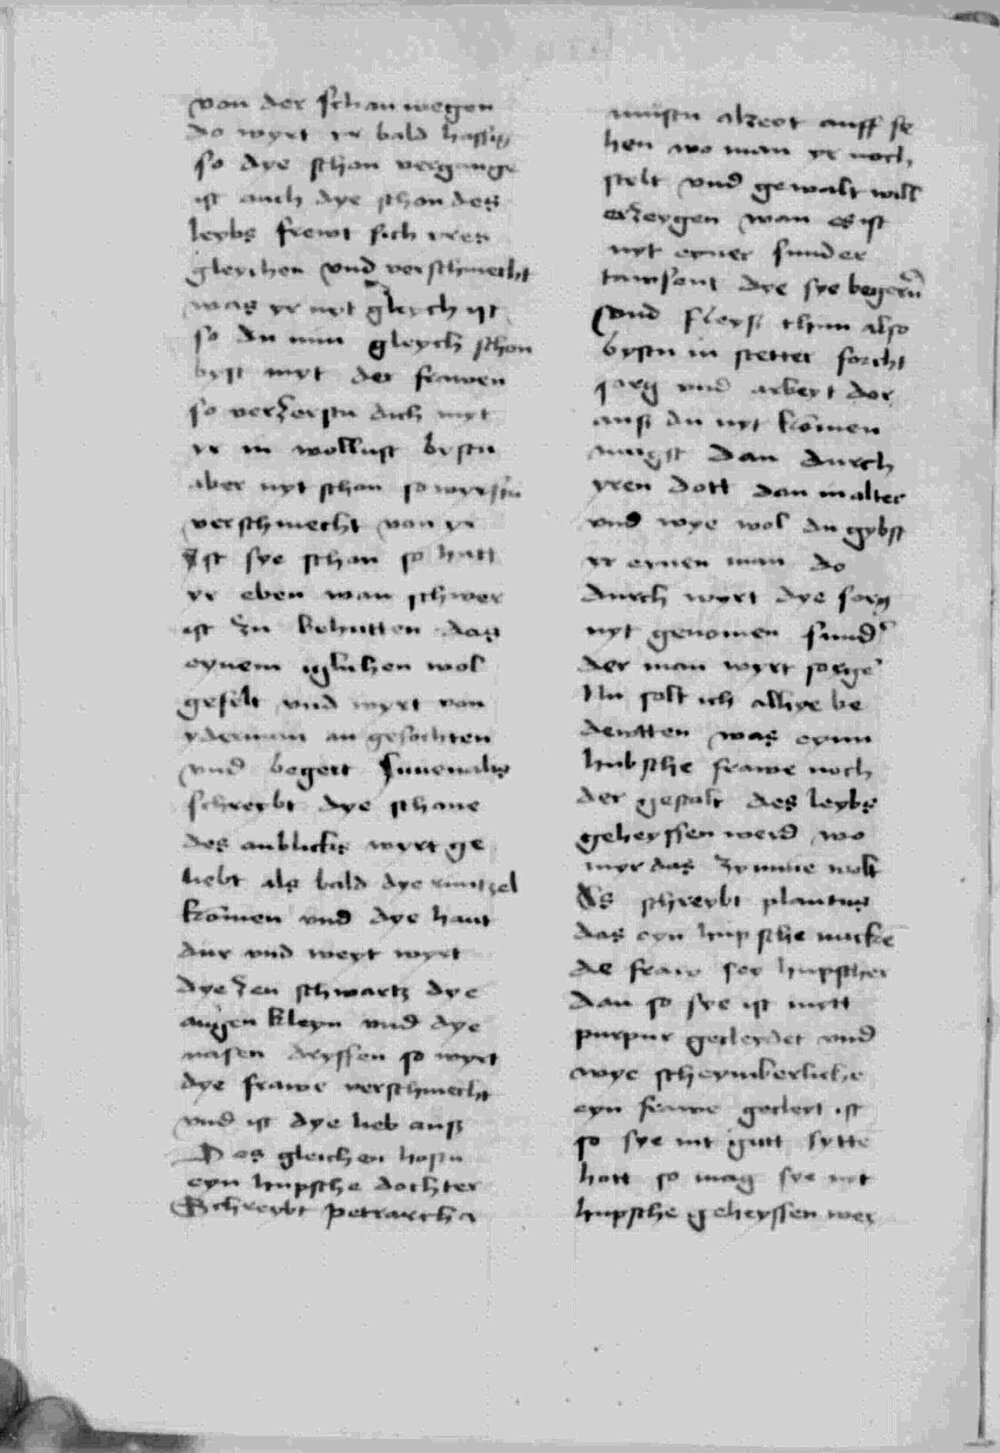 von der schan wegen
do wyrt yr bald hassig
so dye schon vergange
ist auch dye schon des
leybs frewt sich yres
gleychen vnd verschmecht
was yr nyt gleych ist
so du nun gleych schon
byst myt der frawen
so verzerstu dich myt
yr in wollust bystu
aber nyt schon so wyrstu
verschmecht von yr
Ist sye schon so hatt
yr eben wan schwer
ist zu behutten das
eynem iglichen wol
gefelt vnd wyrt von
yderman an gefochten
vnd begert Juuenalis
schreybt dye schone
des anblickis wyrt ge
liebt als bald dye runtzel
komen vnd dye haut
dur vnd weyt wyrt
dye zen schwartz dye
augen kleyn vnd dye
nasen dryssen so wyrt
dye frawe verschmecht
vnd ist dye lieb auß
Des gleichen hostu
eyn hupsche dochter
Schreybt petrarcha
mustu alzeyt auff se
hen wo man yr noch
stelt vnd gewalt will
erzeygen wan es ist
nyt eyner sunder
tawsent dye sye begern̄
vnd fleyß thun also
bystu in stetter forcht
sorg vnd arbeyt dor
auß du nyt kōmen
magst dan durch
yren dott dan in alter
vnd wye wol du gybst
yr eynen man do
durch wyrt dye sorg
nyt genomen sund'
der man wyrt sorge'
Nu solt ich alhye be
dewtten was eynn
hubsche frawe noch
der gestalt des leybs
geheyssen werd wo
myr das zymme wolt
Es schreybt plautus
das eyn hupsche nacke
de fraw sey hupscher
dan so sye ist mitt
purpur gecleydet vnd
wye scheymberliche
eyn frawe gecleyt ist
so sye nit gutt sytte
hott so mag sye nyt
hupsche geheyssen wer